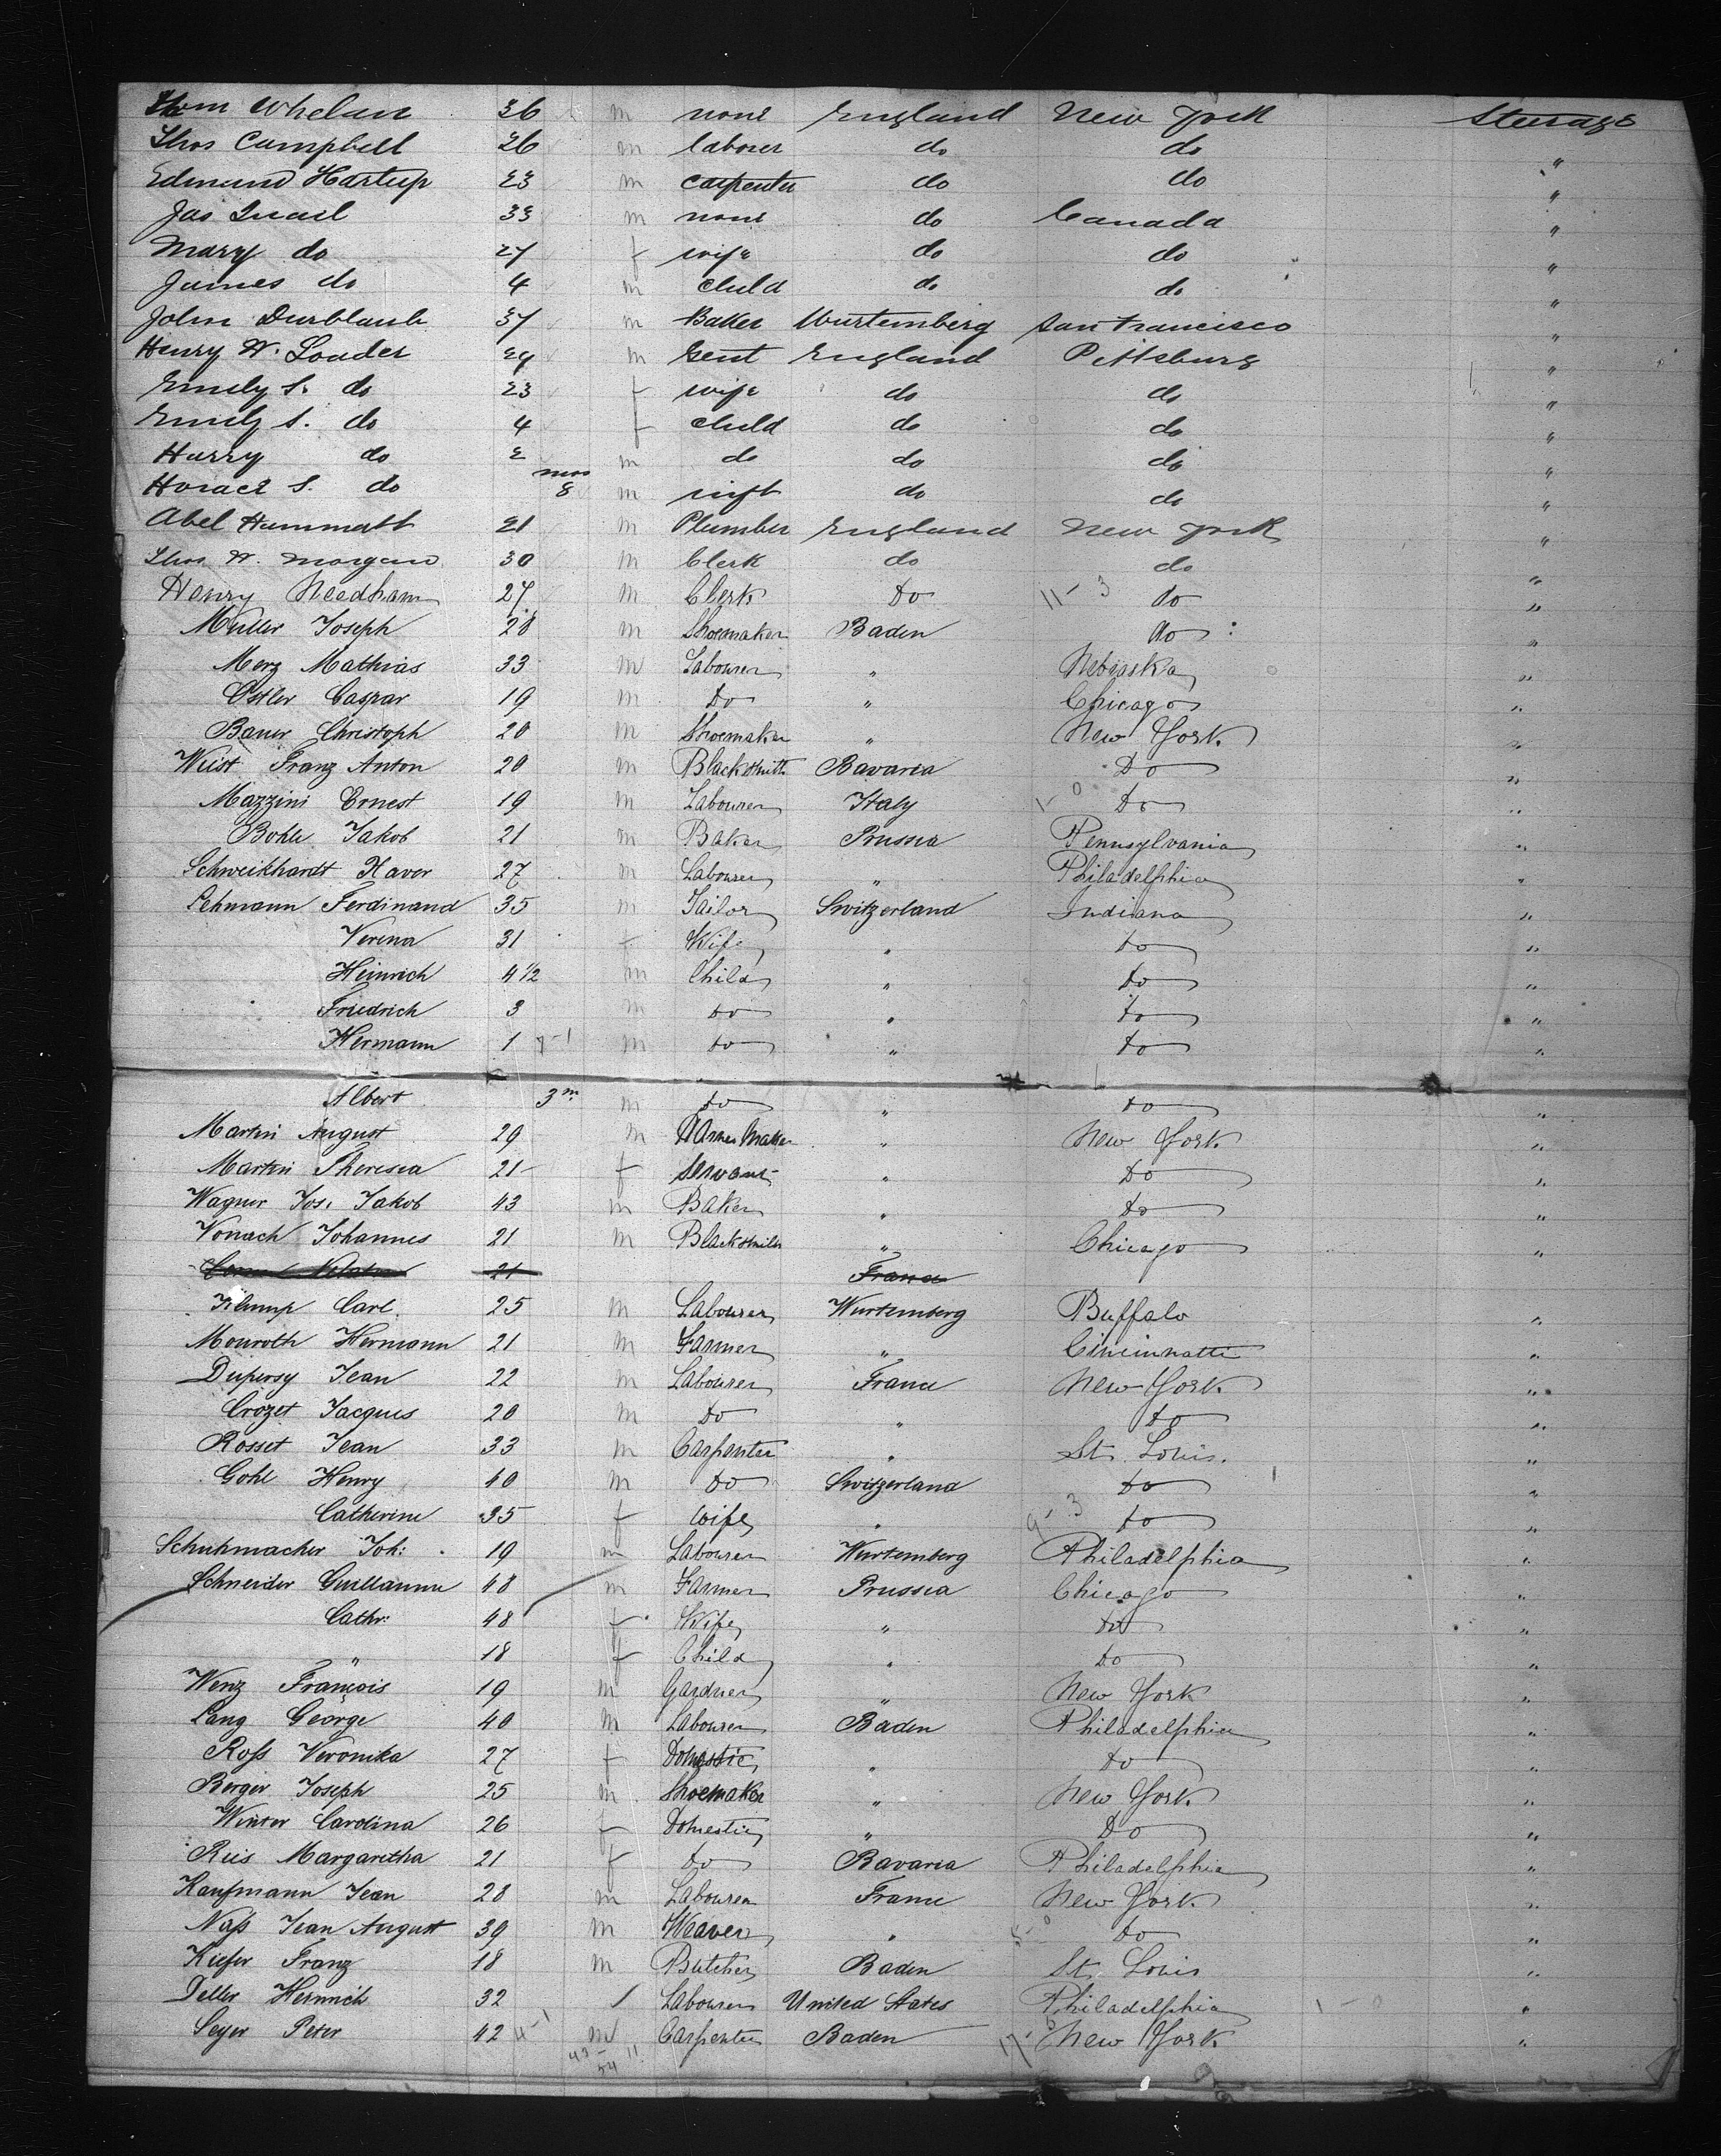 Whelan 36 m none England New York Steerage
Thos Campbell 26 m laborer do do "
Edmund Hartup 23 m carpenter do do "
Jas Quail 33 m none do Canada "
Mary do 27 f wife do do "
James do 4 m child do do "
John Durblaub 37 m Baker Wurtemberg San Francisco "
Henry W. Louder 29 m Gent England Pittsburg "
Emily S. do 23 f wife do do "
Emily S. do 4 f child do do "
Harry do 2 m do do do "
Horace S. do mos 8 m inft do do "
Abel Hammatt 21 m Plumber England New York "
Thos W. Morgan 30 m Clerk do do "
Henry Needham 27 m Clerk Do 11-3 do "
Müller Joseph 28 m Shoemaker Baden do "
Merz Mathias 33 m Labourer " Nebraska "
Ostler Caspar 19 m Do " Chicago "
Bauer Christoph 20 m Shoemaker " New York "
Wüst Franz Anton 20 m Blacksmith Bavaria Do "
Mazzini Ernest 19 m Labourer Italy 1-0 Do "
Bohle Jakob 21 m Baker Prussia Pennsylvania "
Schweikhardt Xaver 27 m Labourer " Philadelphia "
Lehmann Ferdinand 35 m Tailor Switzerland Indiana "
Verena 31 f Wife " Do "
Heinrich 4 1/2 m Child " Do "
Friedrich 3 m Do " Do "
Hermann 1 7-1 m Do " Do "
Albert 3 m. m Do " Do "
Martin August 29 m " New York "
Martin Theresia 21 f Servant " Do "
Wagner Jos. Jakob 43 m Baker " Do "
Vonach Johannes 21 m Blacksmith " Chicago "
21 France
Klump Carl 25 m Labourer Wurtemberg Buffalo "
Monroth Hermann 21 m Farmer " Cincinnatti "
Dupersy Jean 22 m Labourer France New York "
Crozet Jacques 20 m Do " Do "
Rosset Jean 33 m Carpenter " St. Louis. "
Gohl Henry 40 m Do Switzerland Do "
Catherine 35 f Wife " 9-3 Do "
Schuhmacher Joh: 19 m Labourer Wurtemberg Philadelphia "
Schneider Guillaume 48 m Farmer Prussia Chicago "
Cathr: 48 f Wife " Do "
" 18 f Child " Do "
Wenz François 19 m Gardner " New York "
Lang George 40 m Labourer Baden Philadelphia "
Roſs Veronika 27 f Domestic " Do "
Berger Joseph 25 m Shoemaker " New York "
Winter Carolina 26 f Domestic " Do "
Reis Margaretha 21 f Do Bavaria Philadelphia "
Kaufmann Jean 28 m Labourer France New York "
Naſs Jean August 39 m Weaver " Do "
Kiefer Franz 18 m Butcher Baden St. Louis "
Deller Heinrich 32 Labourer United States Philadelphia 1-0 "
Seyer Peter 42 4-1 m Carpenter Baden New York "